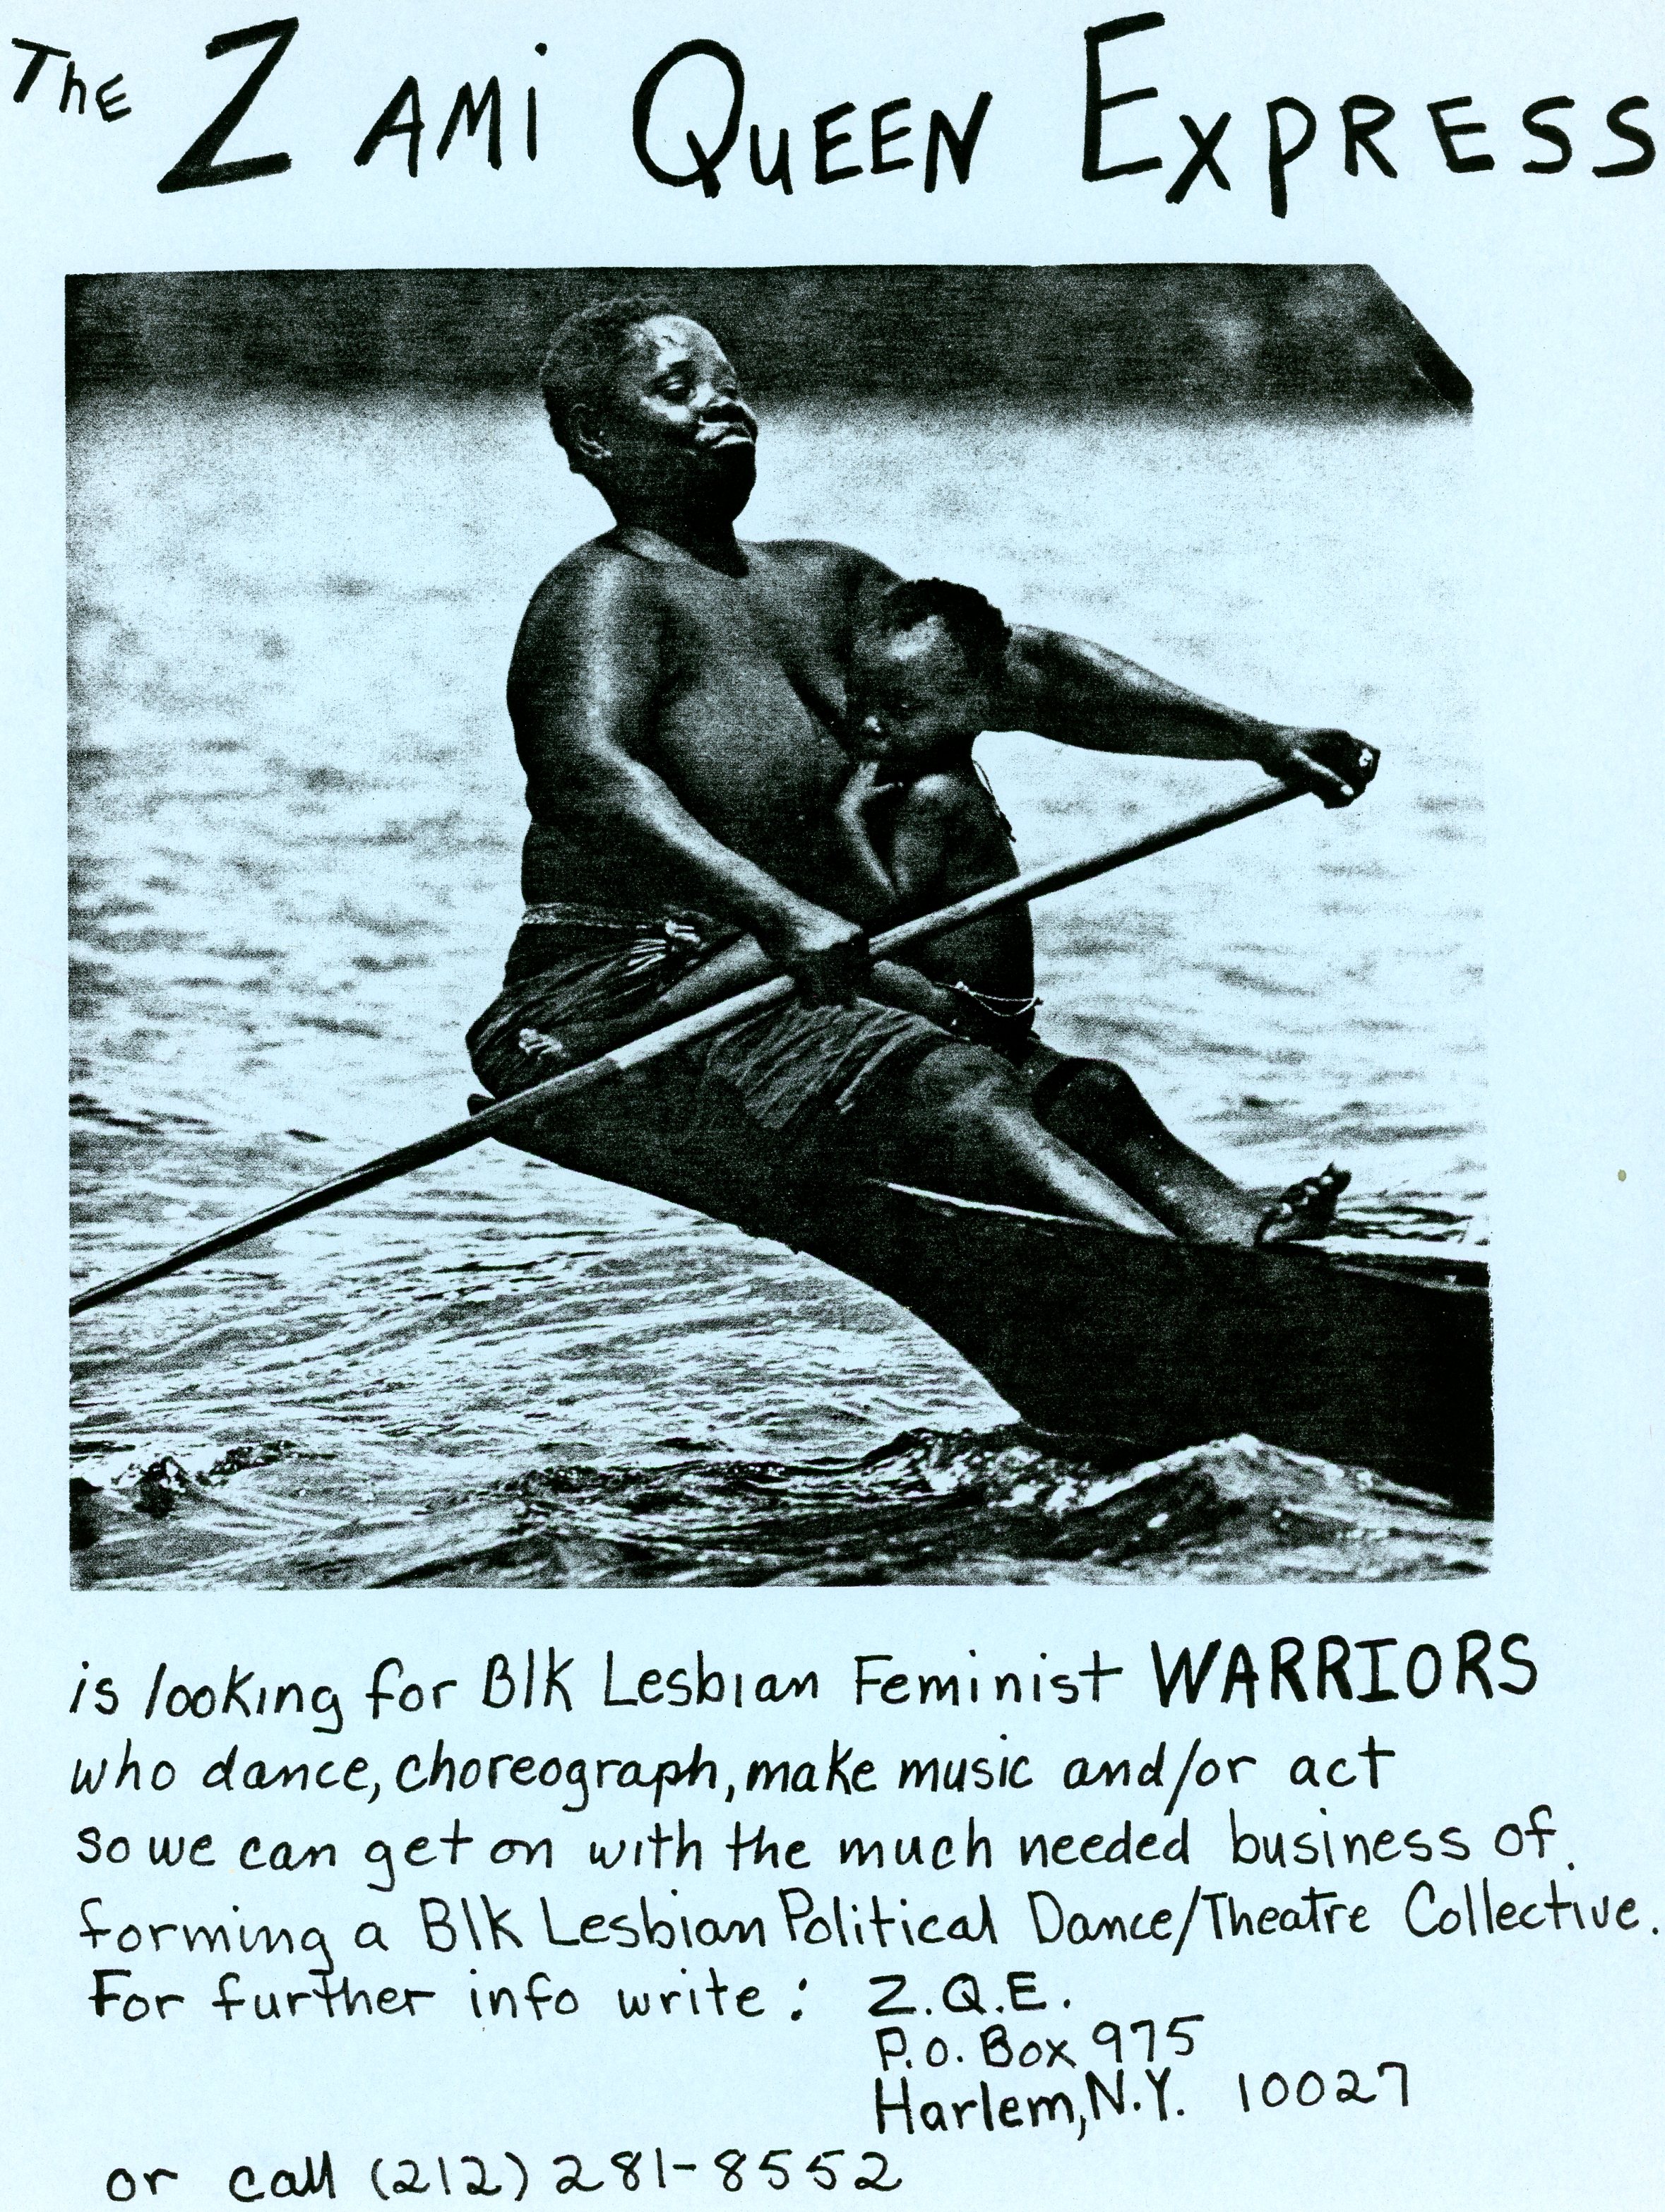 The Zami Queen Express
is looking for Blk Lesbian Feminist WARRIORS
who dance, choreograph, make music and/or act
so we can get on with the much needed business of
forming a Blk Lesbian Political Dance/Theatre Collective.
For further info write: Z.Q.E.
P.O. Box 975
Harlem, N.Y. 10027
or call (212) 281-8552